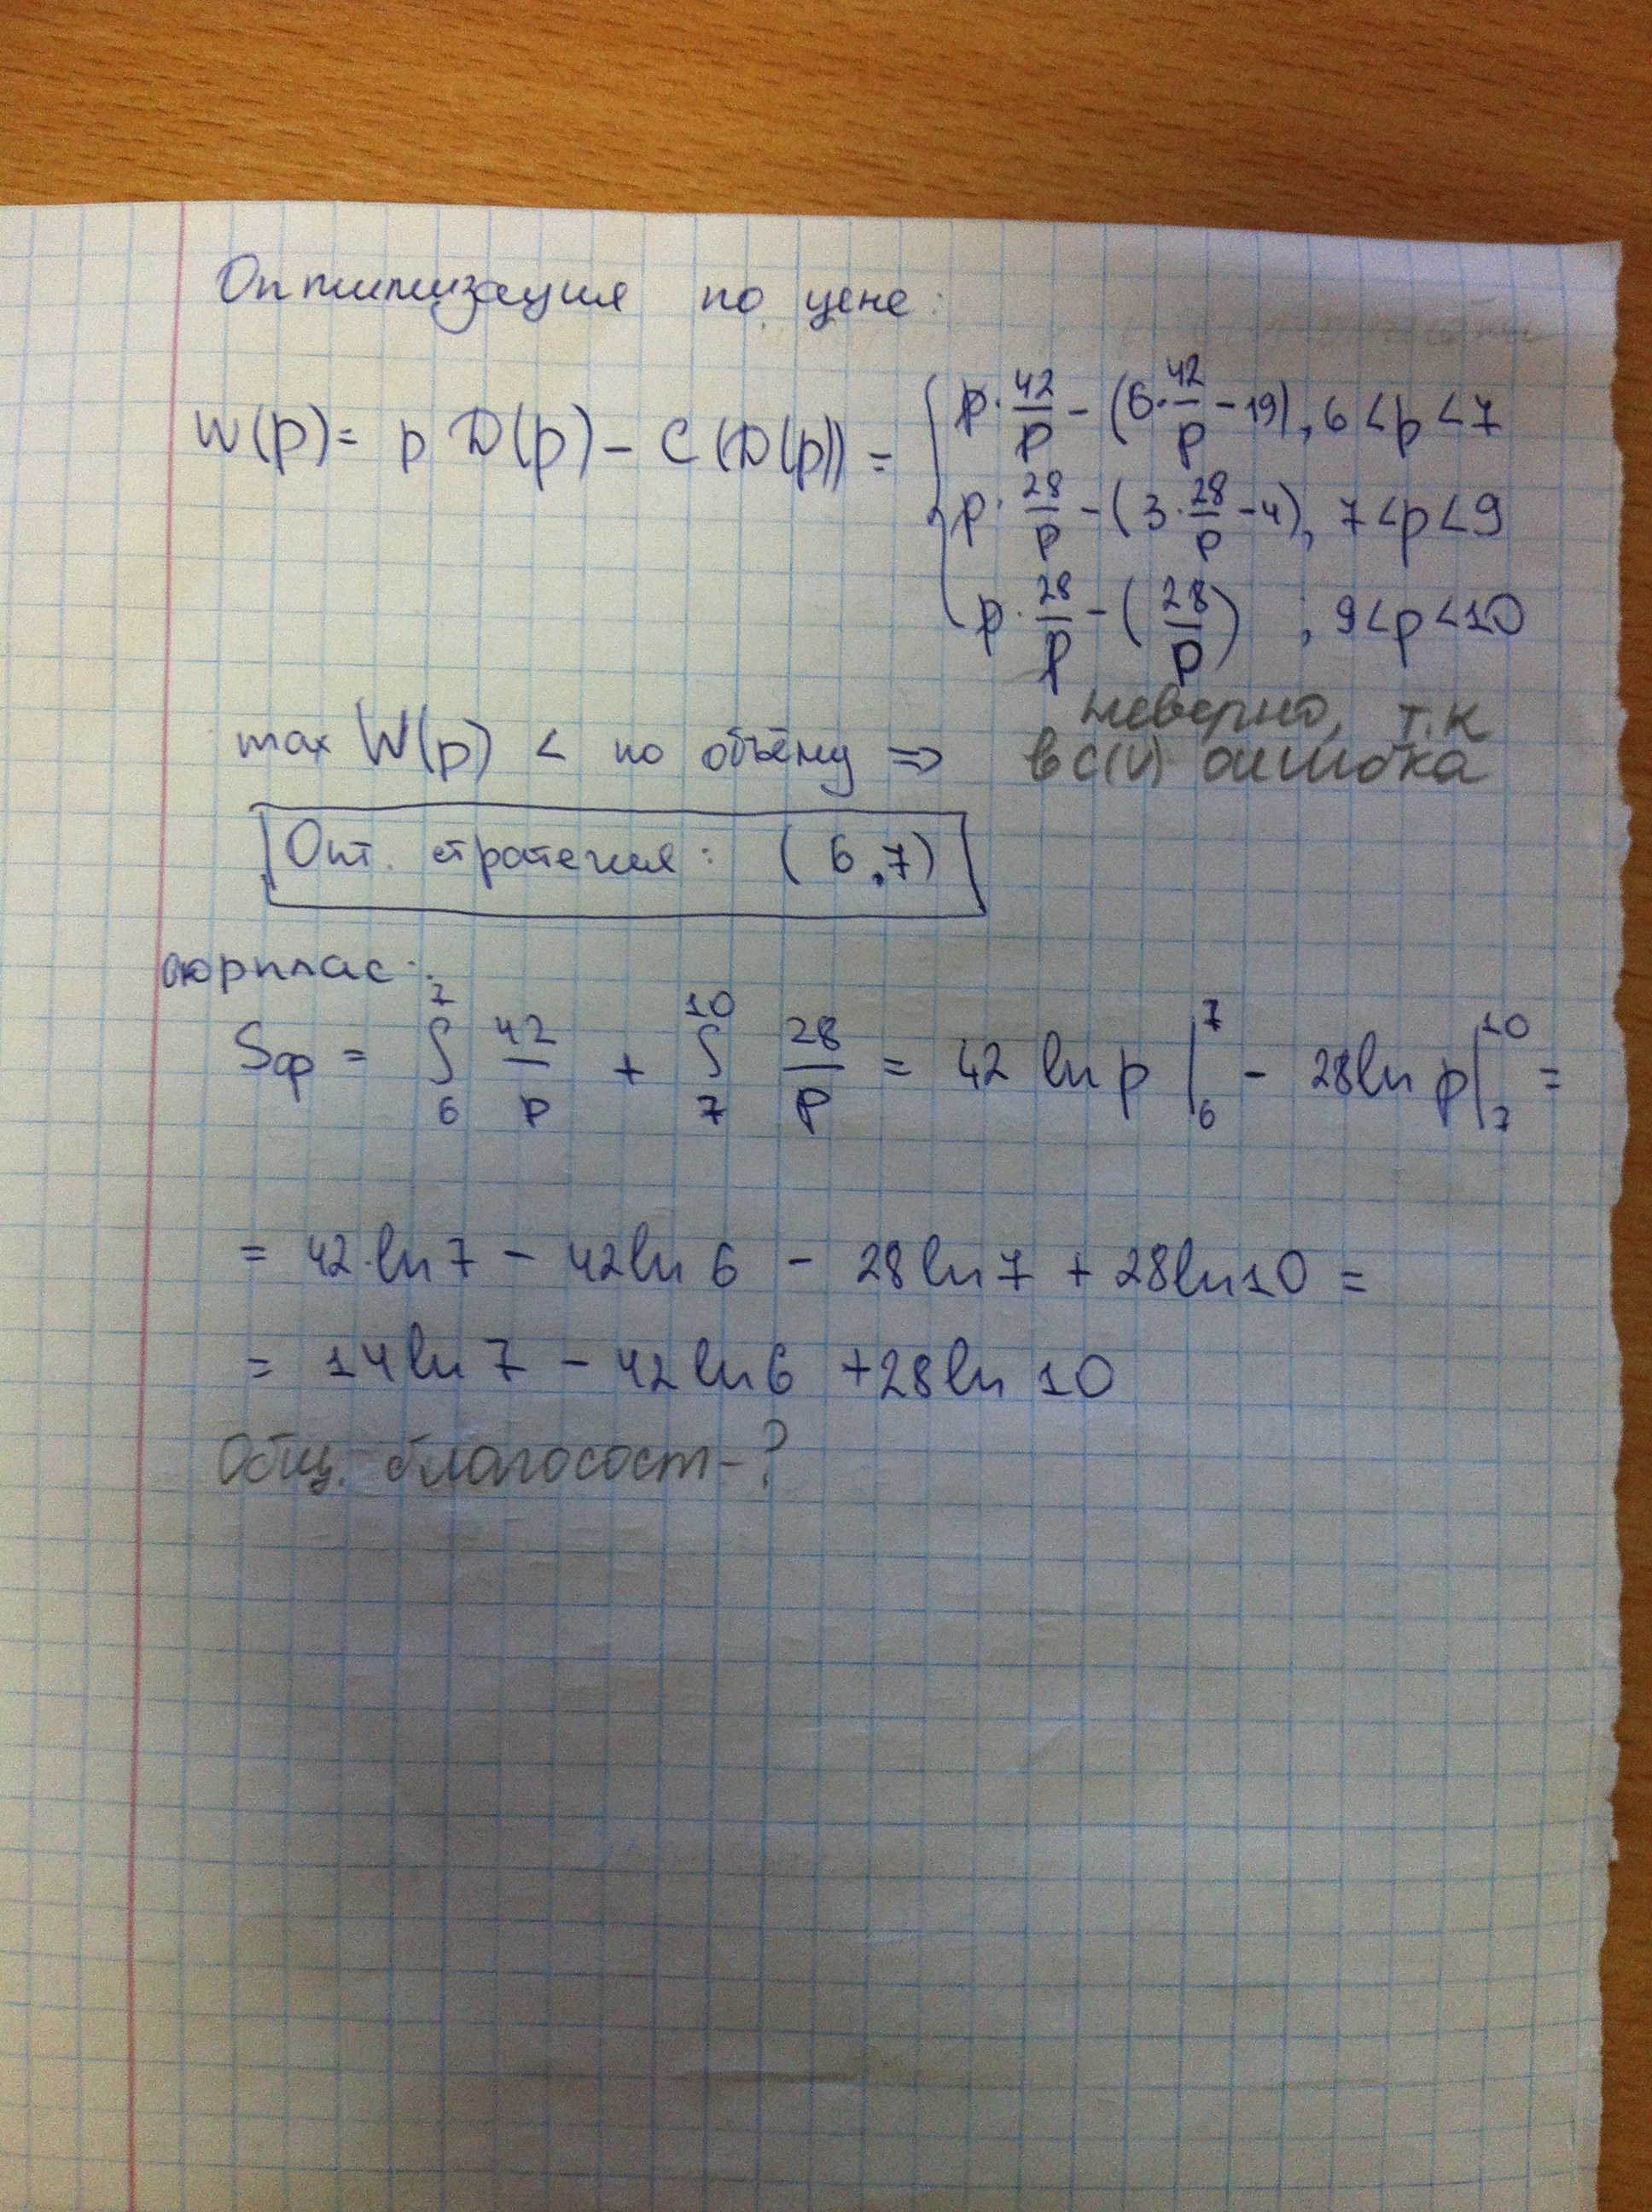 Оптимизация по цене:
W(p) = p D(p) - C(D(p)) =
p · 42/p - (6 · 42/p - 19), 6 < p < 7
p · 28/p - (3 · 28/p - 4), 7 < p < 9
p · 28/p - (28/p) ; 9 < p < 10
неверно, т.к
max W(p) < по объёму ⇒ в C(V) ошибка
Опт. стратегия: (6,7)
сюрплас:
Sф = ∫₆⁷ 42/p + ∫₇¹⁰ 28/p = 42 ln p |₆⁷ - 28 ln p |₇¹⁰ =
= 42 · ln 7 - 42 ln 6 - 28 ln 7 + 28 ln 10 =
= 14 ln 7 - 42 ln 6 + 28 ln 10
Общ. благосост-?